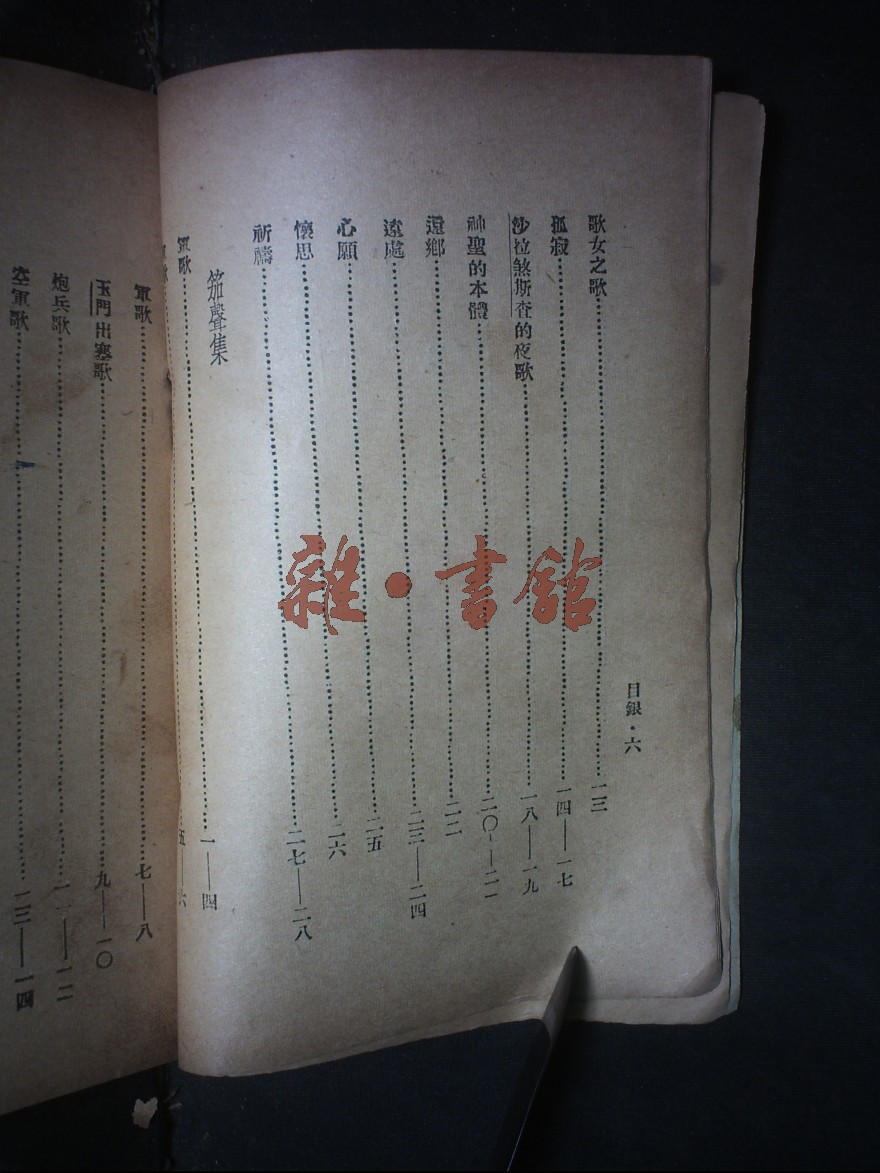 目銀・六
歌女之歌……一三
孤寂……一四——一七
沙拉煞斯查的夜歌……一八——一九
神聖的本體……二〇——二一
還鄉……二二
遠處……二三——二四
心願……二五
懷思……二六
祈禱……二七——二八
笳聲集
軍歌……一——四
五——六
軍歌……七——八
玉門出塞歌……九——一〇
炮兵歌……一一——一二
空軍歌……一三——一四
雜・書館